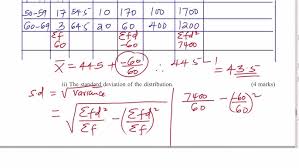 50-59 17 54.5 10 170 100 1700
60-69 3 64.5 20 60 400 1200
Σf Σfd Σfd²
60 -60 7400
X̄ = 44.5 + (-60/60) ∴ 44.5 - 1 = 43.5
(ii) The standard deviation of the distribution. (4 marks)
s.d = √Variance
= √(Σfd²/Σf - (Σfd/Σf)²) 7400/60 - (-60/60)²